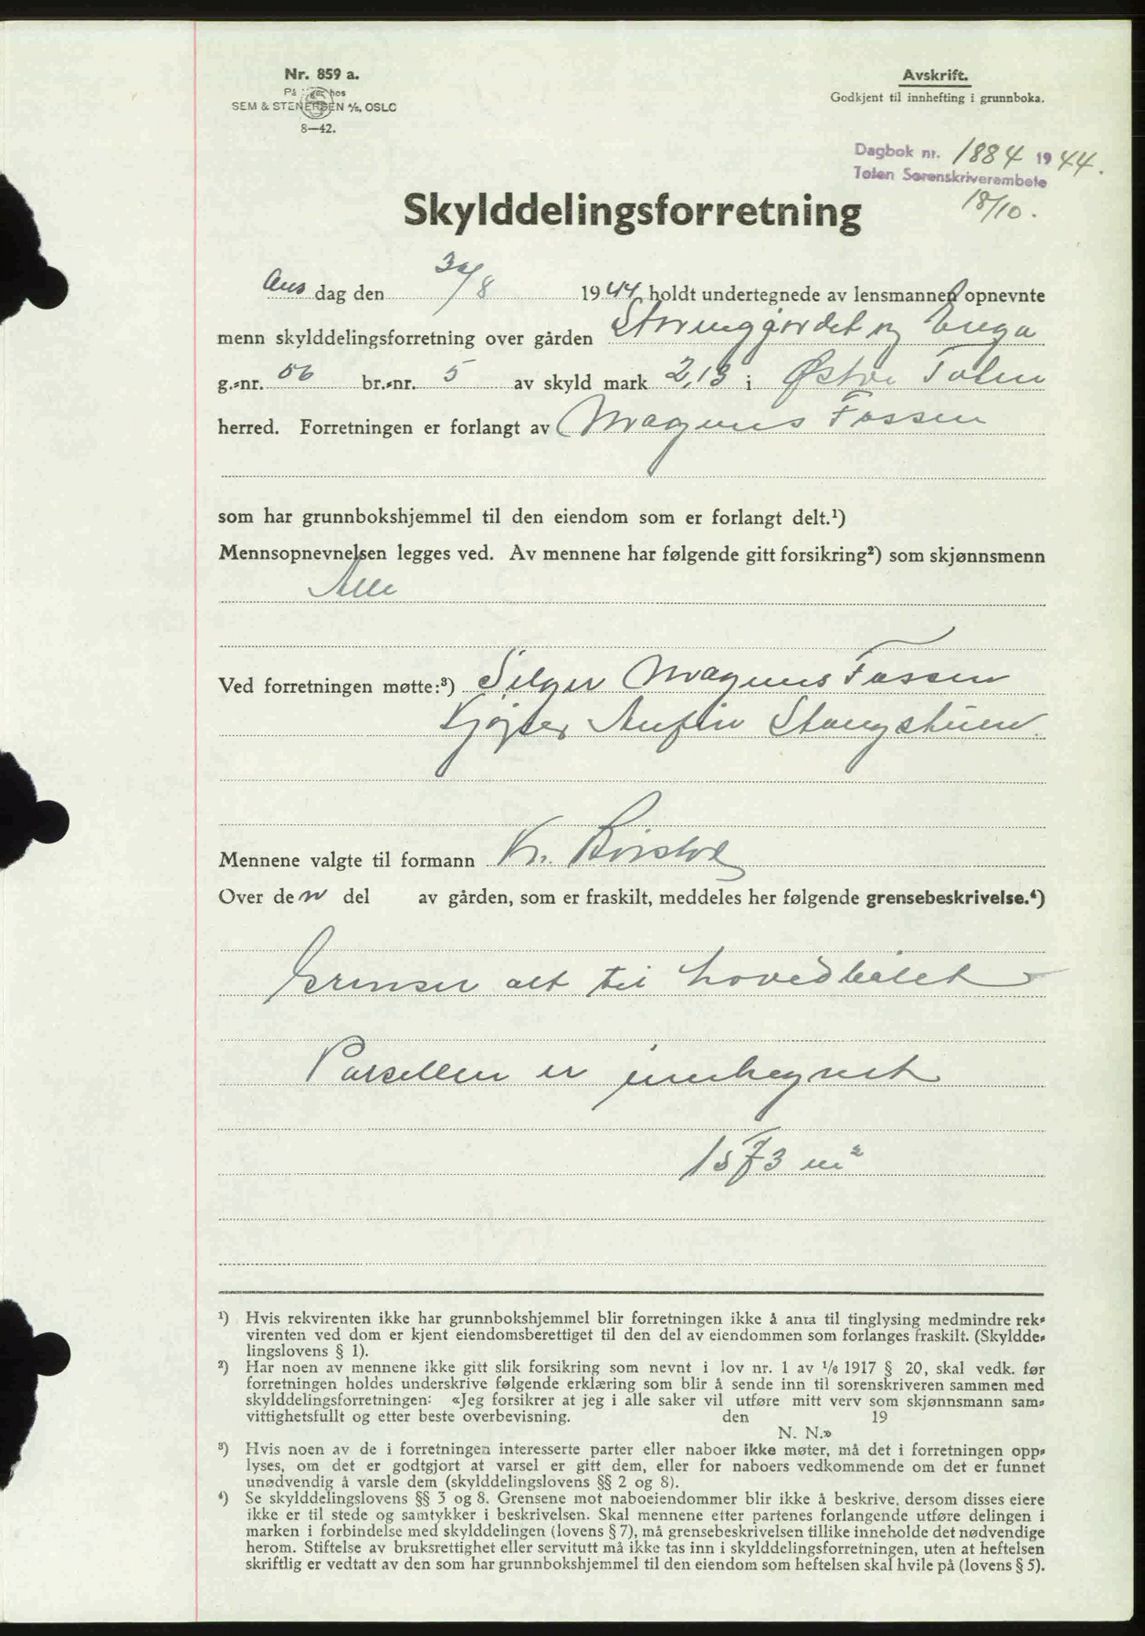 Nr. 859 a.
På lager hos
SEM & STENERSEN A/S, OSLO
8—42.
Avskrift.
Godkjent til innhefting i grunnboka.
Dagbok nr. 1884 1944.
Toten Sorenskriverembete
18/10.
Skylddelingsforretning
Ons dag den 30/8 1944 holdt undertegnede av lensmannen opnevnte
menn skylddelingsforretning over gården og Enga
g.-nr. 56 br.-nr. 5 av skyld mark 2,13 i Østre Toten
herred. Forretningen er forlangt av Magnus Fossen
som har grunnbokshjemmel til den eiendom som er forlangt delt.¹)
Mennsopnevnelsen legges ved. Av mennene har følgende gitt forsikring²) som skjønnsmenn
Alle
Ved forretningen møtte:³) Selger Magnus Fossen
Kjøper Anfin Stangstuen.
Mennene valgte til formann Kr.
Over den del av gården, som er fraskilt, meddeles her følgende grensebeskrivelse.⁴)
Grenser alt til hovedbølet
Parsellen er innhegnet
1573 m²
¹) Hvis rekvirenten ikke har grunnbokshjemmel blir forretningen ikke å anta til tinglysing medmindre rek-
virenten ved dom er kjent eiendomsberettiget til den del av eiendommen som forlanges fraskilt. (Skyldde-
lingslovens § 1).
²) Har noen av mennene ikke gitt slik forsikring som nevnt i lov nr. 1 av ¹/₆ 1917 § 20, skal vedk. før
forretningen holdes underskrive følgende erklæring som blir å sende inn til sorenskriveren sammen med
skylddelingsforretningen: «Jeg forsikrer at jeg i alle saker vil utføre mitt verv som skjønnsmann sam-
vittighetsfullt og etter beste overbevisning. den 19
N. N.»
³) Hvis noen av de i forretningen interesserte parter eller naboer ikke møter, må det i forretningen opp-
lyses, om det er godtgjort at varsel er gitt dem, eller for naboers vedkommende om det er funnet
unødvendig å varsle dem (skylddelingslovens §§ 2 og 8).
⁴) Se skylddelingslovens §§ 3 og 8. Grensene mot naboeiendommer blir ikke å beskrive, dersom disses eiere
ikke er til stede og samtykker i beskrivelsen. Skal mennene etter partenes forlangende utføre delingen i
marken i forbindelse med skylddelingen (lovens § 7), må grensebeskrivelsen tillike inneholde det nødvendige
herom. Stiftelse av bruksrettighet eller servitutt må ikke tas inn i skylddelingsforretningen, uten at heftelsen
skriftlig er vedtatt av den som har grunnbokshjemmel til den eiendom som heftelsen skal hvile på (lovens § 5).